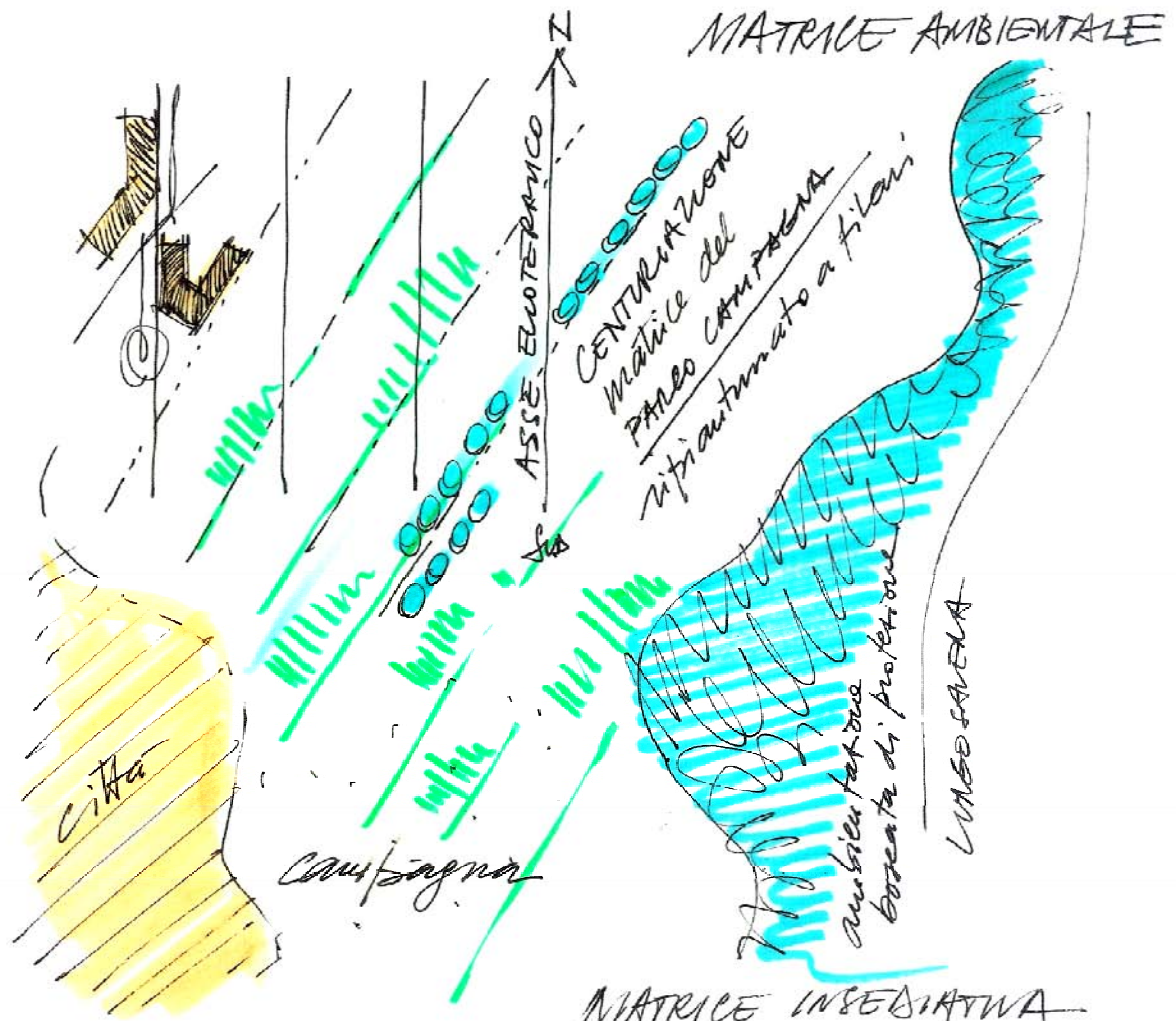 N
MATRICE AMBIENTALE
ASSE ELIOTERMICO
CENTURIAZIONE
matrice del
PARCO CAMPAGNA
ripiantumato a filari
città
campagna
boscata di protezione
LUNGOSAVENA
MATRICE INSEDIATIVA